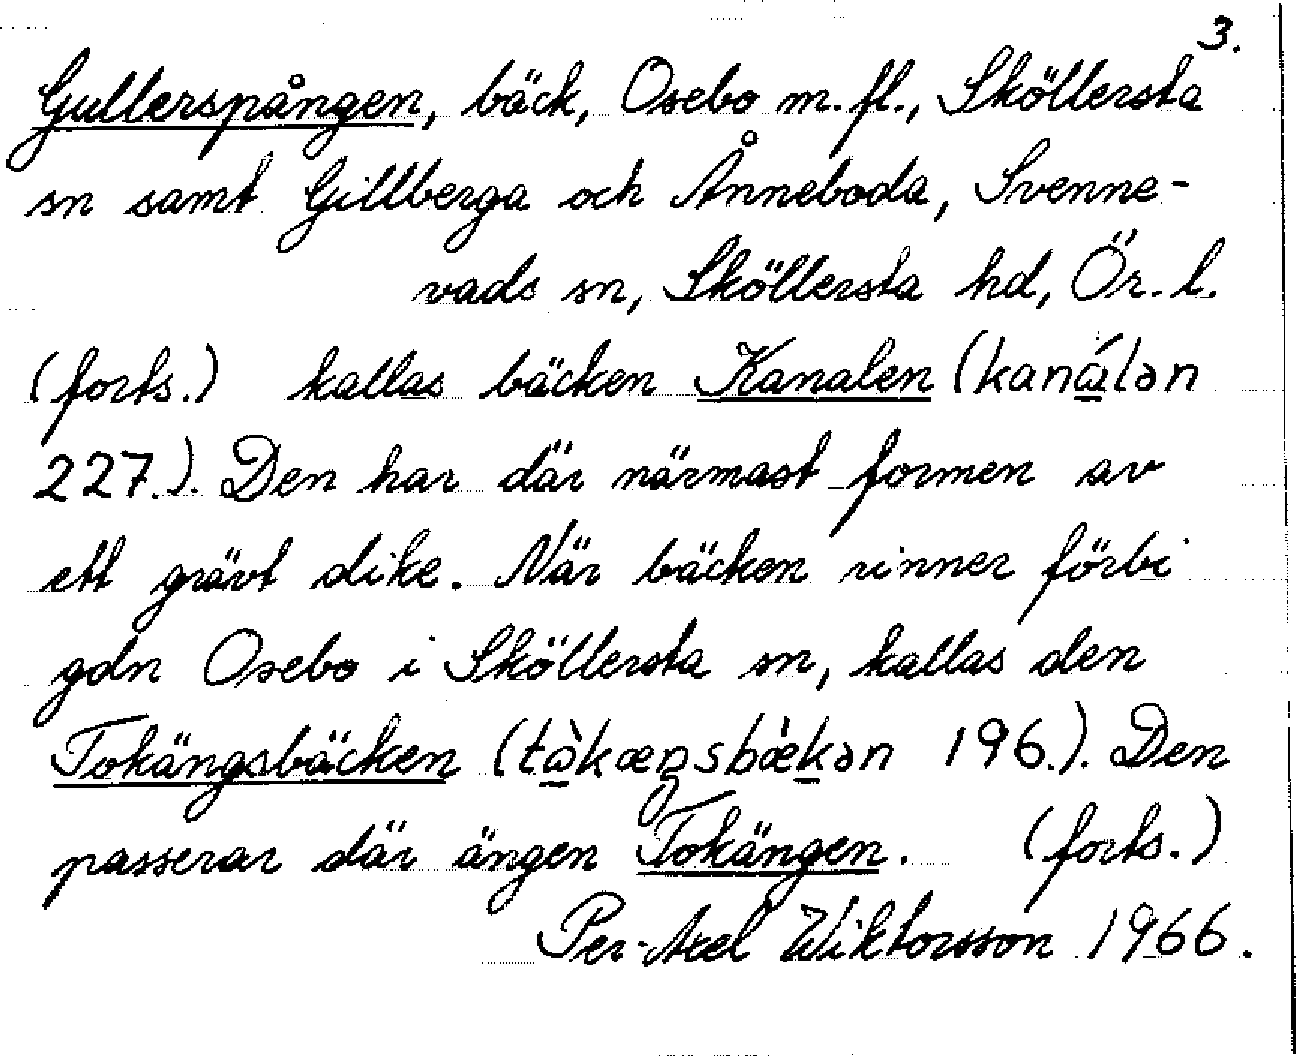 3.
Gullerspången, bäck, Osebo m.fl., Sköllersta
sn samt Gillberga och Ånneboda, Svenne-
vads sn, Sköllersta hd, Ör. l.
(forts.) kallas bäcken Kanalen (kaná̱lən
227.). Den har där närmast formen av
ett grävt dike. När bäcken rinner förbi
gdn Osebo i Sköllersta sn, kallas den
Tokängsbäcken (tə̱̀kæŋsbæ̀ḵən 196.). Den
passerar där ängen Tokängen. (forts.)
Per-Axel Wiktorsson 1966.